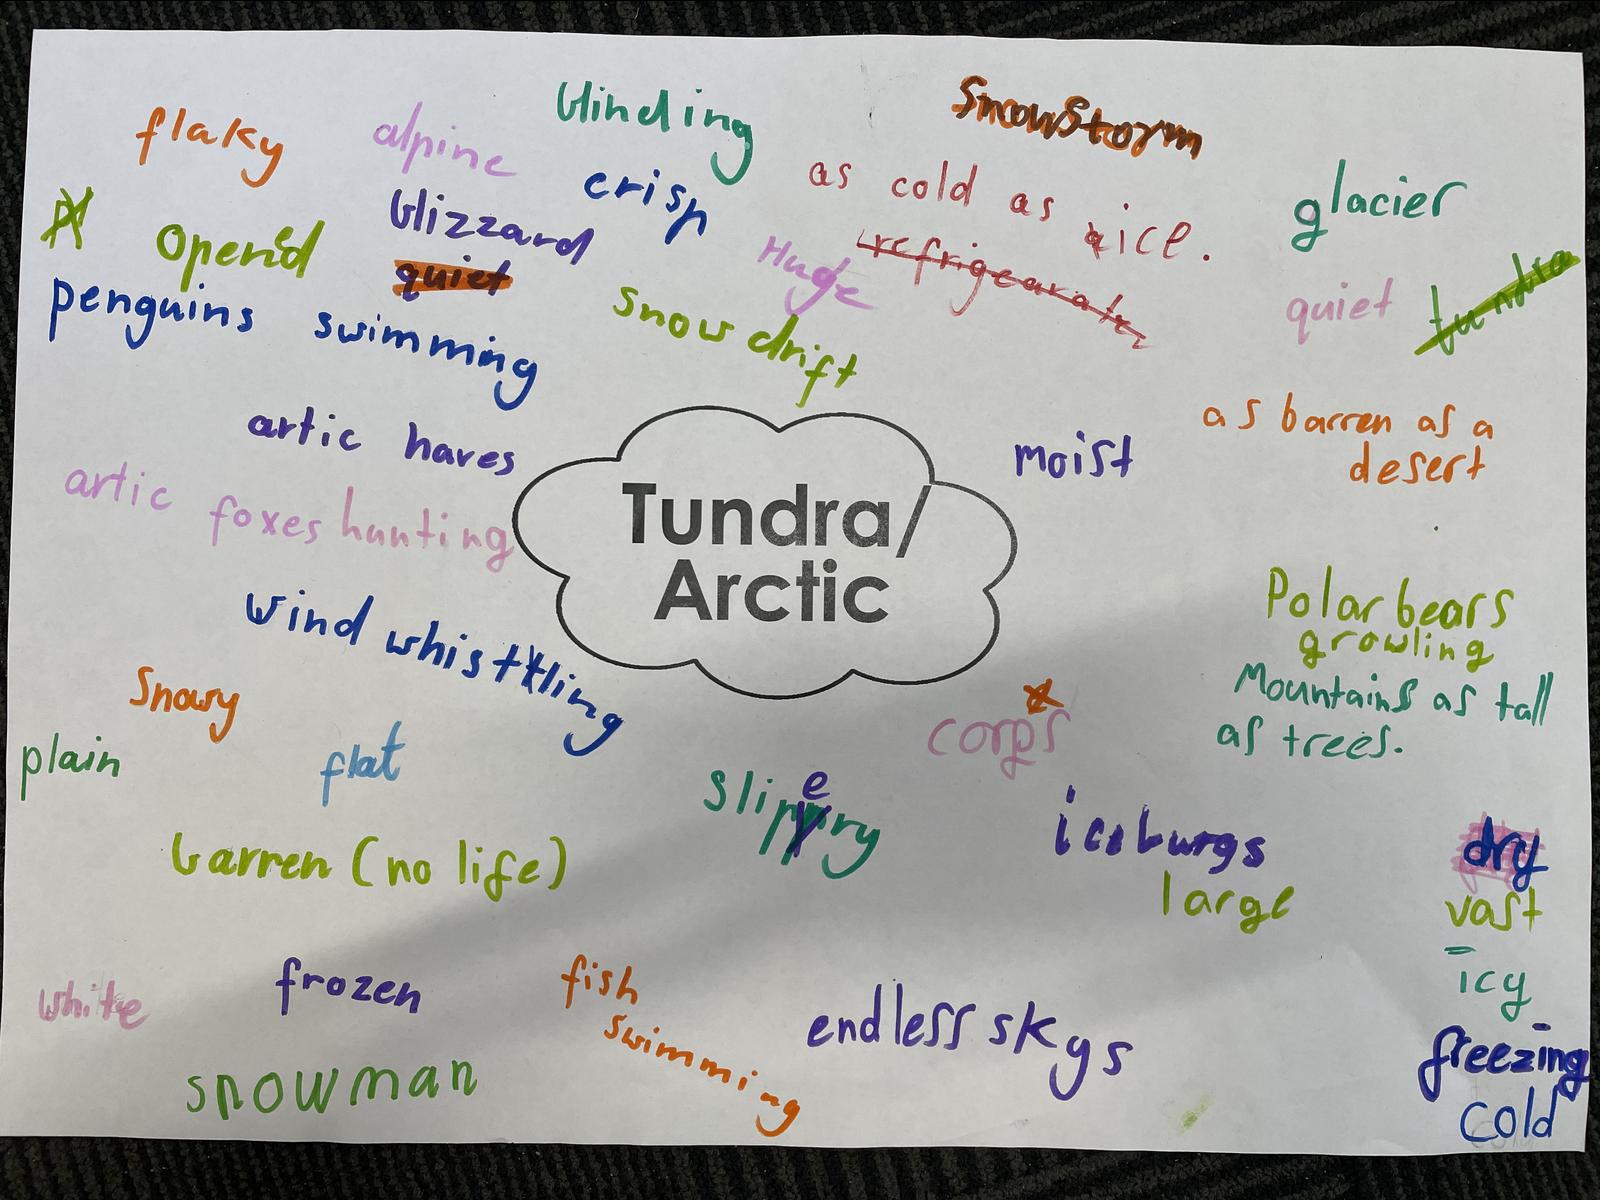 flaky
alpine
blinding
Snowstorm
crisp
as cold as ice.
glacier
Opened
blizzard
quiet
Huge
refrigearater
quiet
tundra
penguins swimming
snow drift
artic hares
moist
as barren as a
desert
artic foxes hunting
Tundra/
Arctic
wind whistling
Polar bears
growling
Mountains as tall
as trees.
Snowy
plain
flat
corps
slippery
iceburgs
large
dry
vast
barren (no life)
icy
white
frozen
fish
swimming
endless skys
freezing
cold
snowman